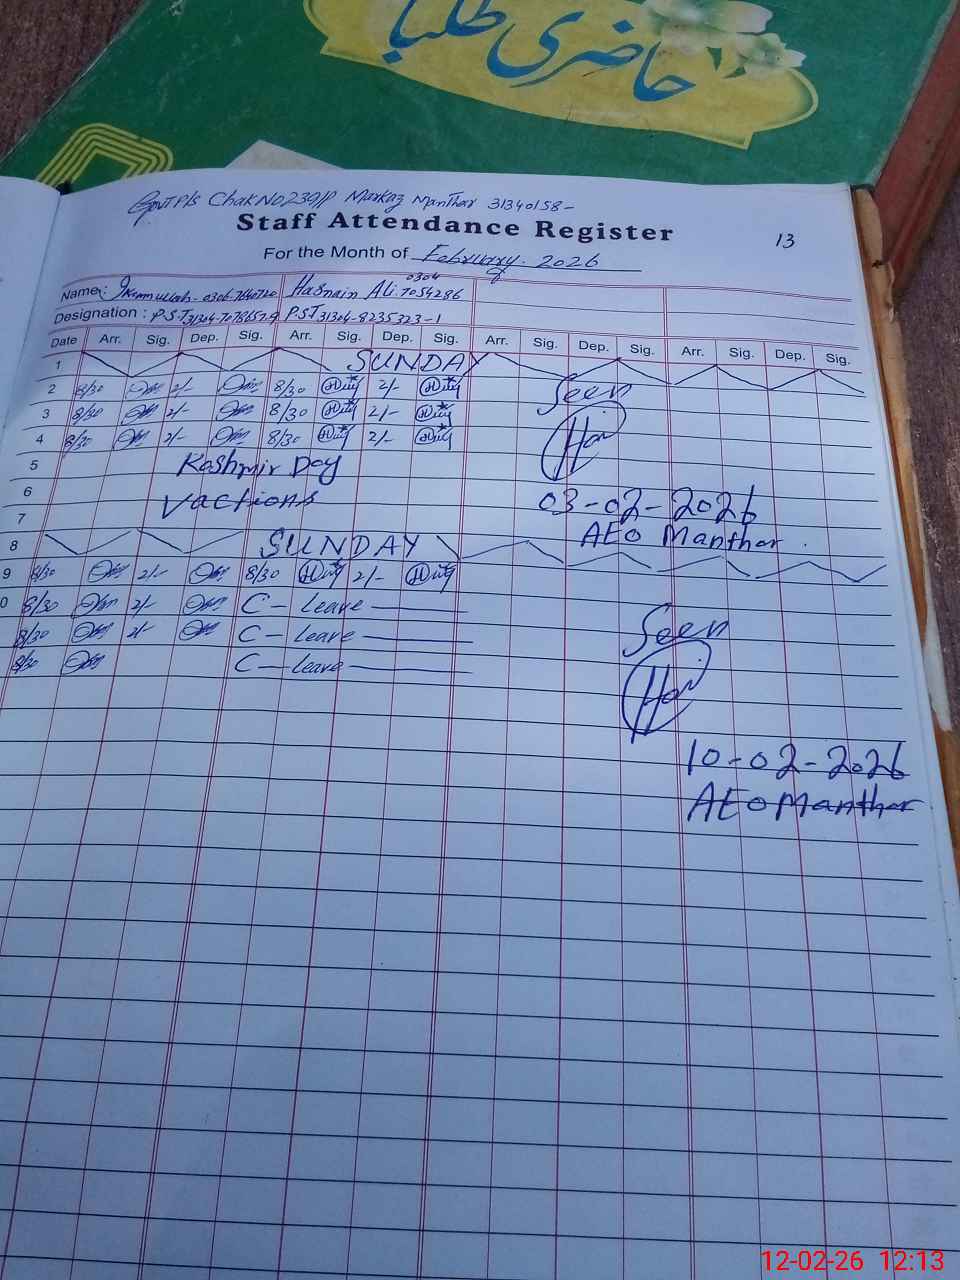 حاضری طلبا
Govt P/s Chak No 239/P Markaz Manthar 31340158-
Staff Attendance Register
13
For the Month of February. 2026
Name: Ikramullah. 0306-7640720 Hasnain Ali 0304 7054286
Designation: P.S.T 31304-7078657-9 P.S.T 31304-8235323-1
Date Arr. Sig. Dep. Sig. Arr. Sig. Dep. Sig. Arr. Sig. Dep. Sig. Arr. Sig. Dep. Sig.
1 SUNDAY
2 8/30 2/- 8/30 2/- Seen
3 8/30 2/- 8/30 2/-
4 8/30 2/- 8/30 2/-
5 Kashmir Day
6 Vactions 03-02-2026
7 AEO Manthar.
8 SUNDAY
9 8/30 2/- 8/30 2/-
0 8/30 2/- C- Leave Seen
8/30 2/- C- Leave
8/30 C- Leave
10-02-2026
AEO Manthar
12-02-26 12:13